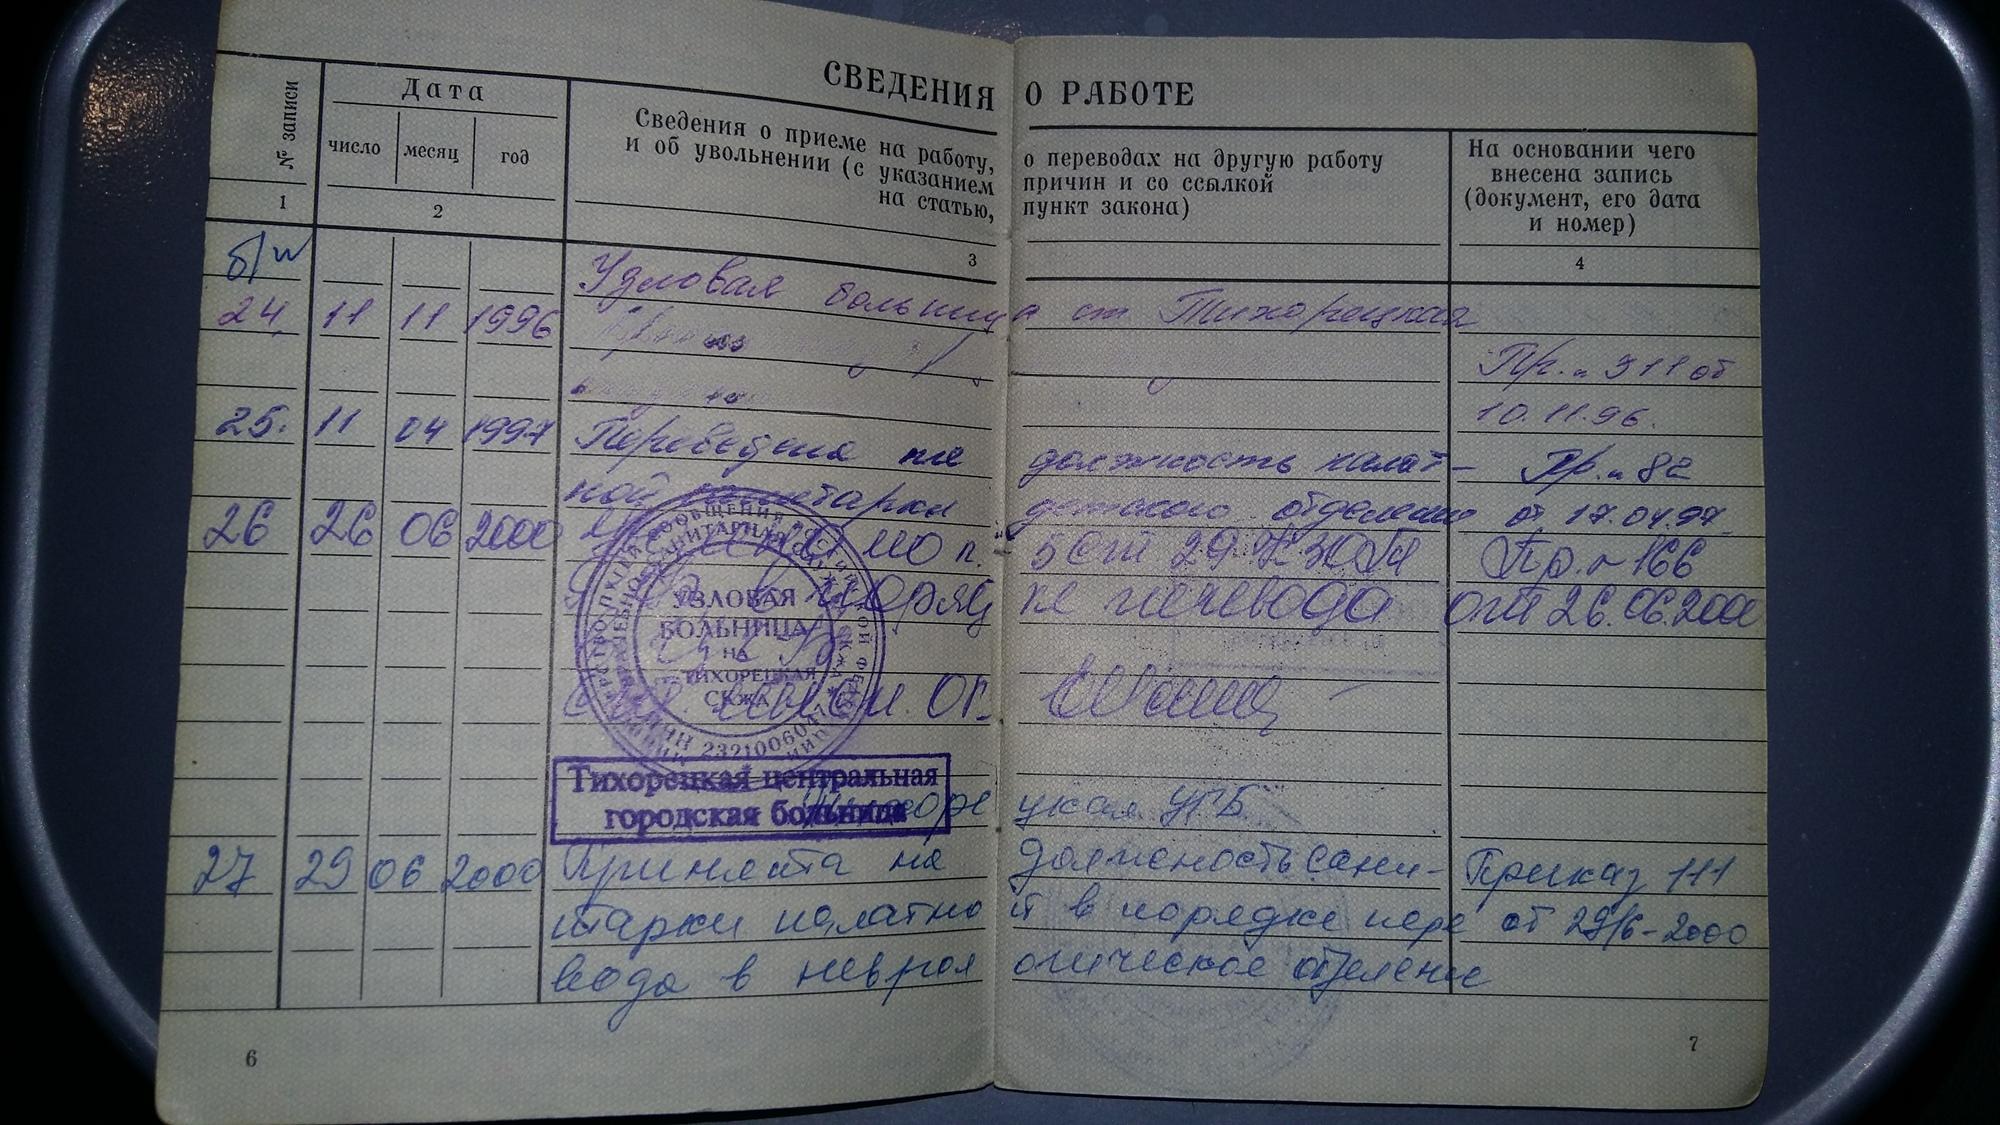 СВЕДЕНИЯ О РАБОТЕ
№ записи
Дата
число месяц год
Сведения о приеме на работу, о переводах на другую работу
и об увольнении (с указанием причин и со ссылкой
на статью, пункт закона)
На основании чего
внесена запись
(документ, его дата
и номер)
1 2 3 4
Узловая больница ст Тихорецкая
24 11 11 1996
Пр. 311 от
10.11.96.
25. 11 04 1997 Переведена на должность палат- Пр. 82
ной санитарки детского отделения от 17.04.97
26 26 06 2000 по п. 5 ст 29 КЗОТ Пр. 166
в порядке перевода от 26.06.2000
УЗЛОВАЯ
БОЛЬНИЦА
НА
ТИХОРЕЦКАЯ
СКЖД
ИНН 2321006047
Тихорецкая центральная
городская больница
Тихорецкая ЦГБ
27 29 06 2000 Принята на должность сани- Приказ 111
тарки палатной в порядке пере от 29/6-2000
вода в неврологическое отделение
6
7